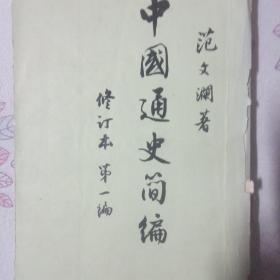 范文澜著
中國通史简编
修订本第一编